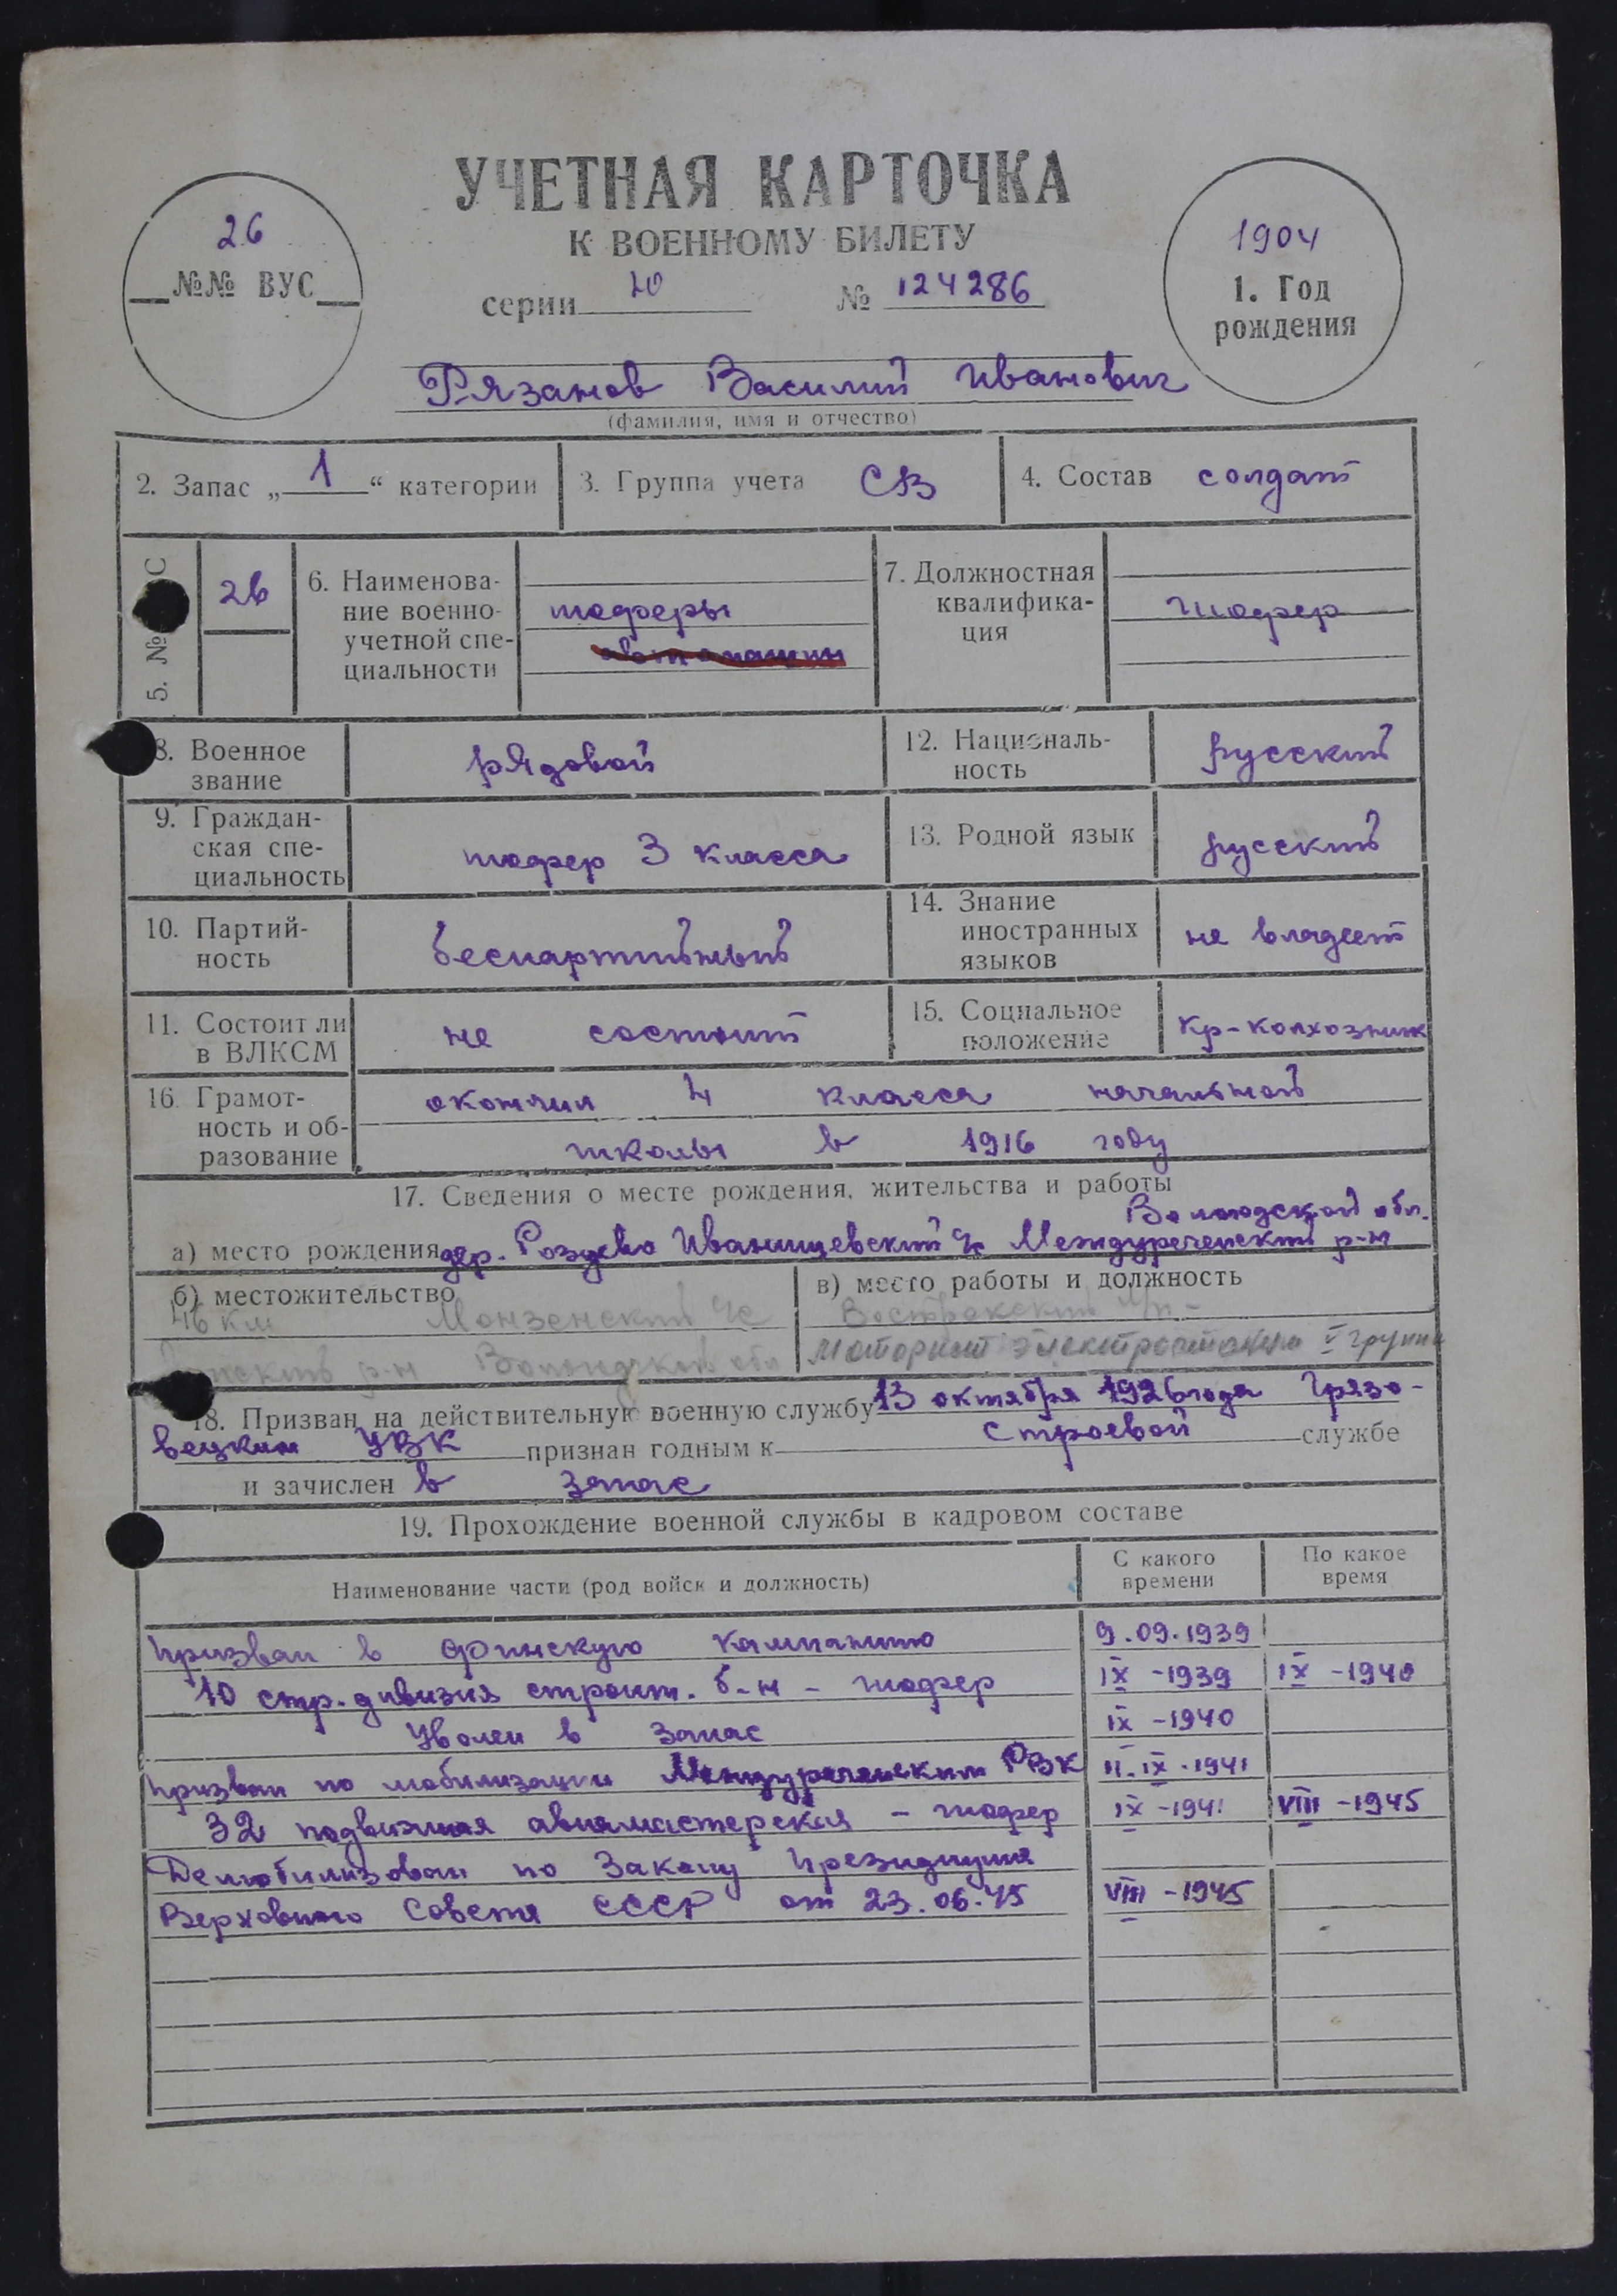 УЧЕТНАЯ КАРТОЧКА
К ВОЕННОМУ БИЛЕТУ
серии № 124286
26
№№ ВУС
1904
1. Год
рождения
Рязанов Василий Иванович
(фамилия, имя и отчество)
2. Запас „ 1 “ категории
3. Группа учета СВ
4. Состав солдат
5. № С
26
6. Наименова-
ние военно-
учетной спе-
циальности
шоферы
7. Должностная
квалифика-
ция
шофер
8. Военное
звание
рядовой
12. Националь-
ность
русский
9. Граждан-
ская спе-
циальность
шофер 3 класса
13. Родной язык
русский
10. Партий-
ность
беспартийный
14. Знание
иностранных
языков
не владеет
11. Состоит ли
в ВЛКСМ
не состоит
15. Социальное
положение
Кр-колхозник
16. Грамот-
ность и об-
разование
окончил 4 класса начальной
школы в 1916 году
17. Сведения о месте рождения, жительства и работы
Вологодской обл.
а) место рождения дер. Иванищевский с/с Междуреченский р-н
б) местожительство
46 км Монзенский с/с
р-н Вологодской обл
в) место работы и должность
моторист электростанции V группы
18. Призван на действительную военную службу 13 октября 1926 года Грязо-
вецким УВК признан годным к строевой службе
и зачислен в запас
19. Прохождение военной службы в кадровом составе
Наименование части (род войск и должность)
С какого
времени
По какое
время
Призван в финскую кампанию 9.09.1939
10 стр. дивизия строит. б-н - шофер IX - 1939 IX - 1940
Уволен в запас IX - 1940
Призван по мобилизации Междуреченским РВК 11.IX.1941
32 подвижная авиамастерская - шофер IX - 1941 VIII - 1945
Демобилизован по Закону Президиума
Верховного Совета СССР от 23.06.45 VIII - 1945